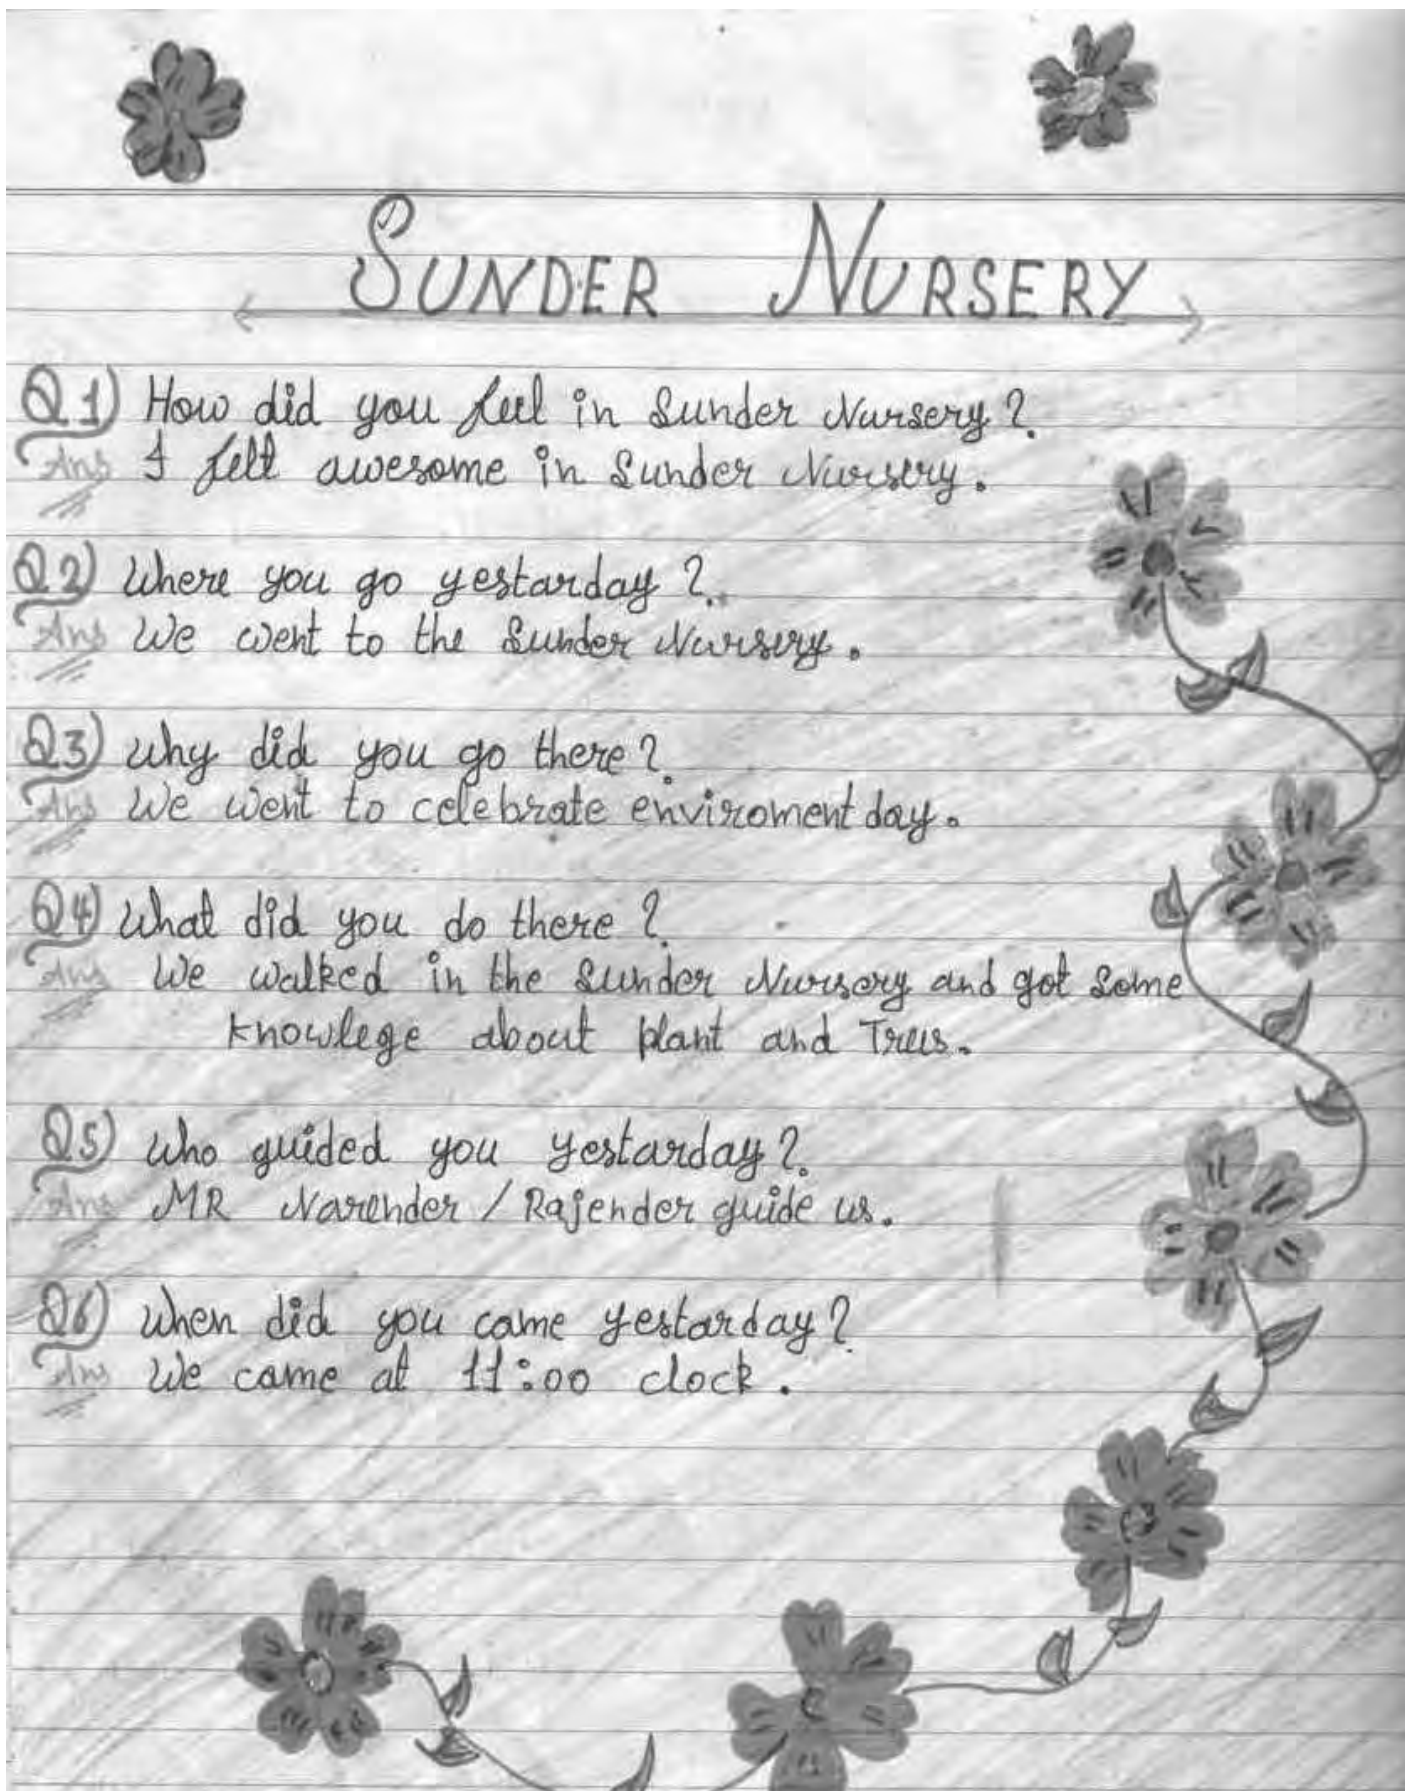 SUNDER NURSERY
Q1) How did you feel in Sunder Nursery?
Ans I felt awesome in Sunder Nursery.
Q2) Where you go yestarday?
Ans We went to the Sunder Nursery.
Q3) Why did you go there?
Ans We went to celebrate enviroment day.
Q4) What did you do there?
Ans We walked in the Sunder Nursery and got some
knowlege about plant and Trees.
Q5) Who guided you yestarday?
Ans MR Narender / Rajender guide us.
Q6) When did you came yestarday?
Ans We came at 11:00 clock.